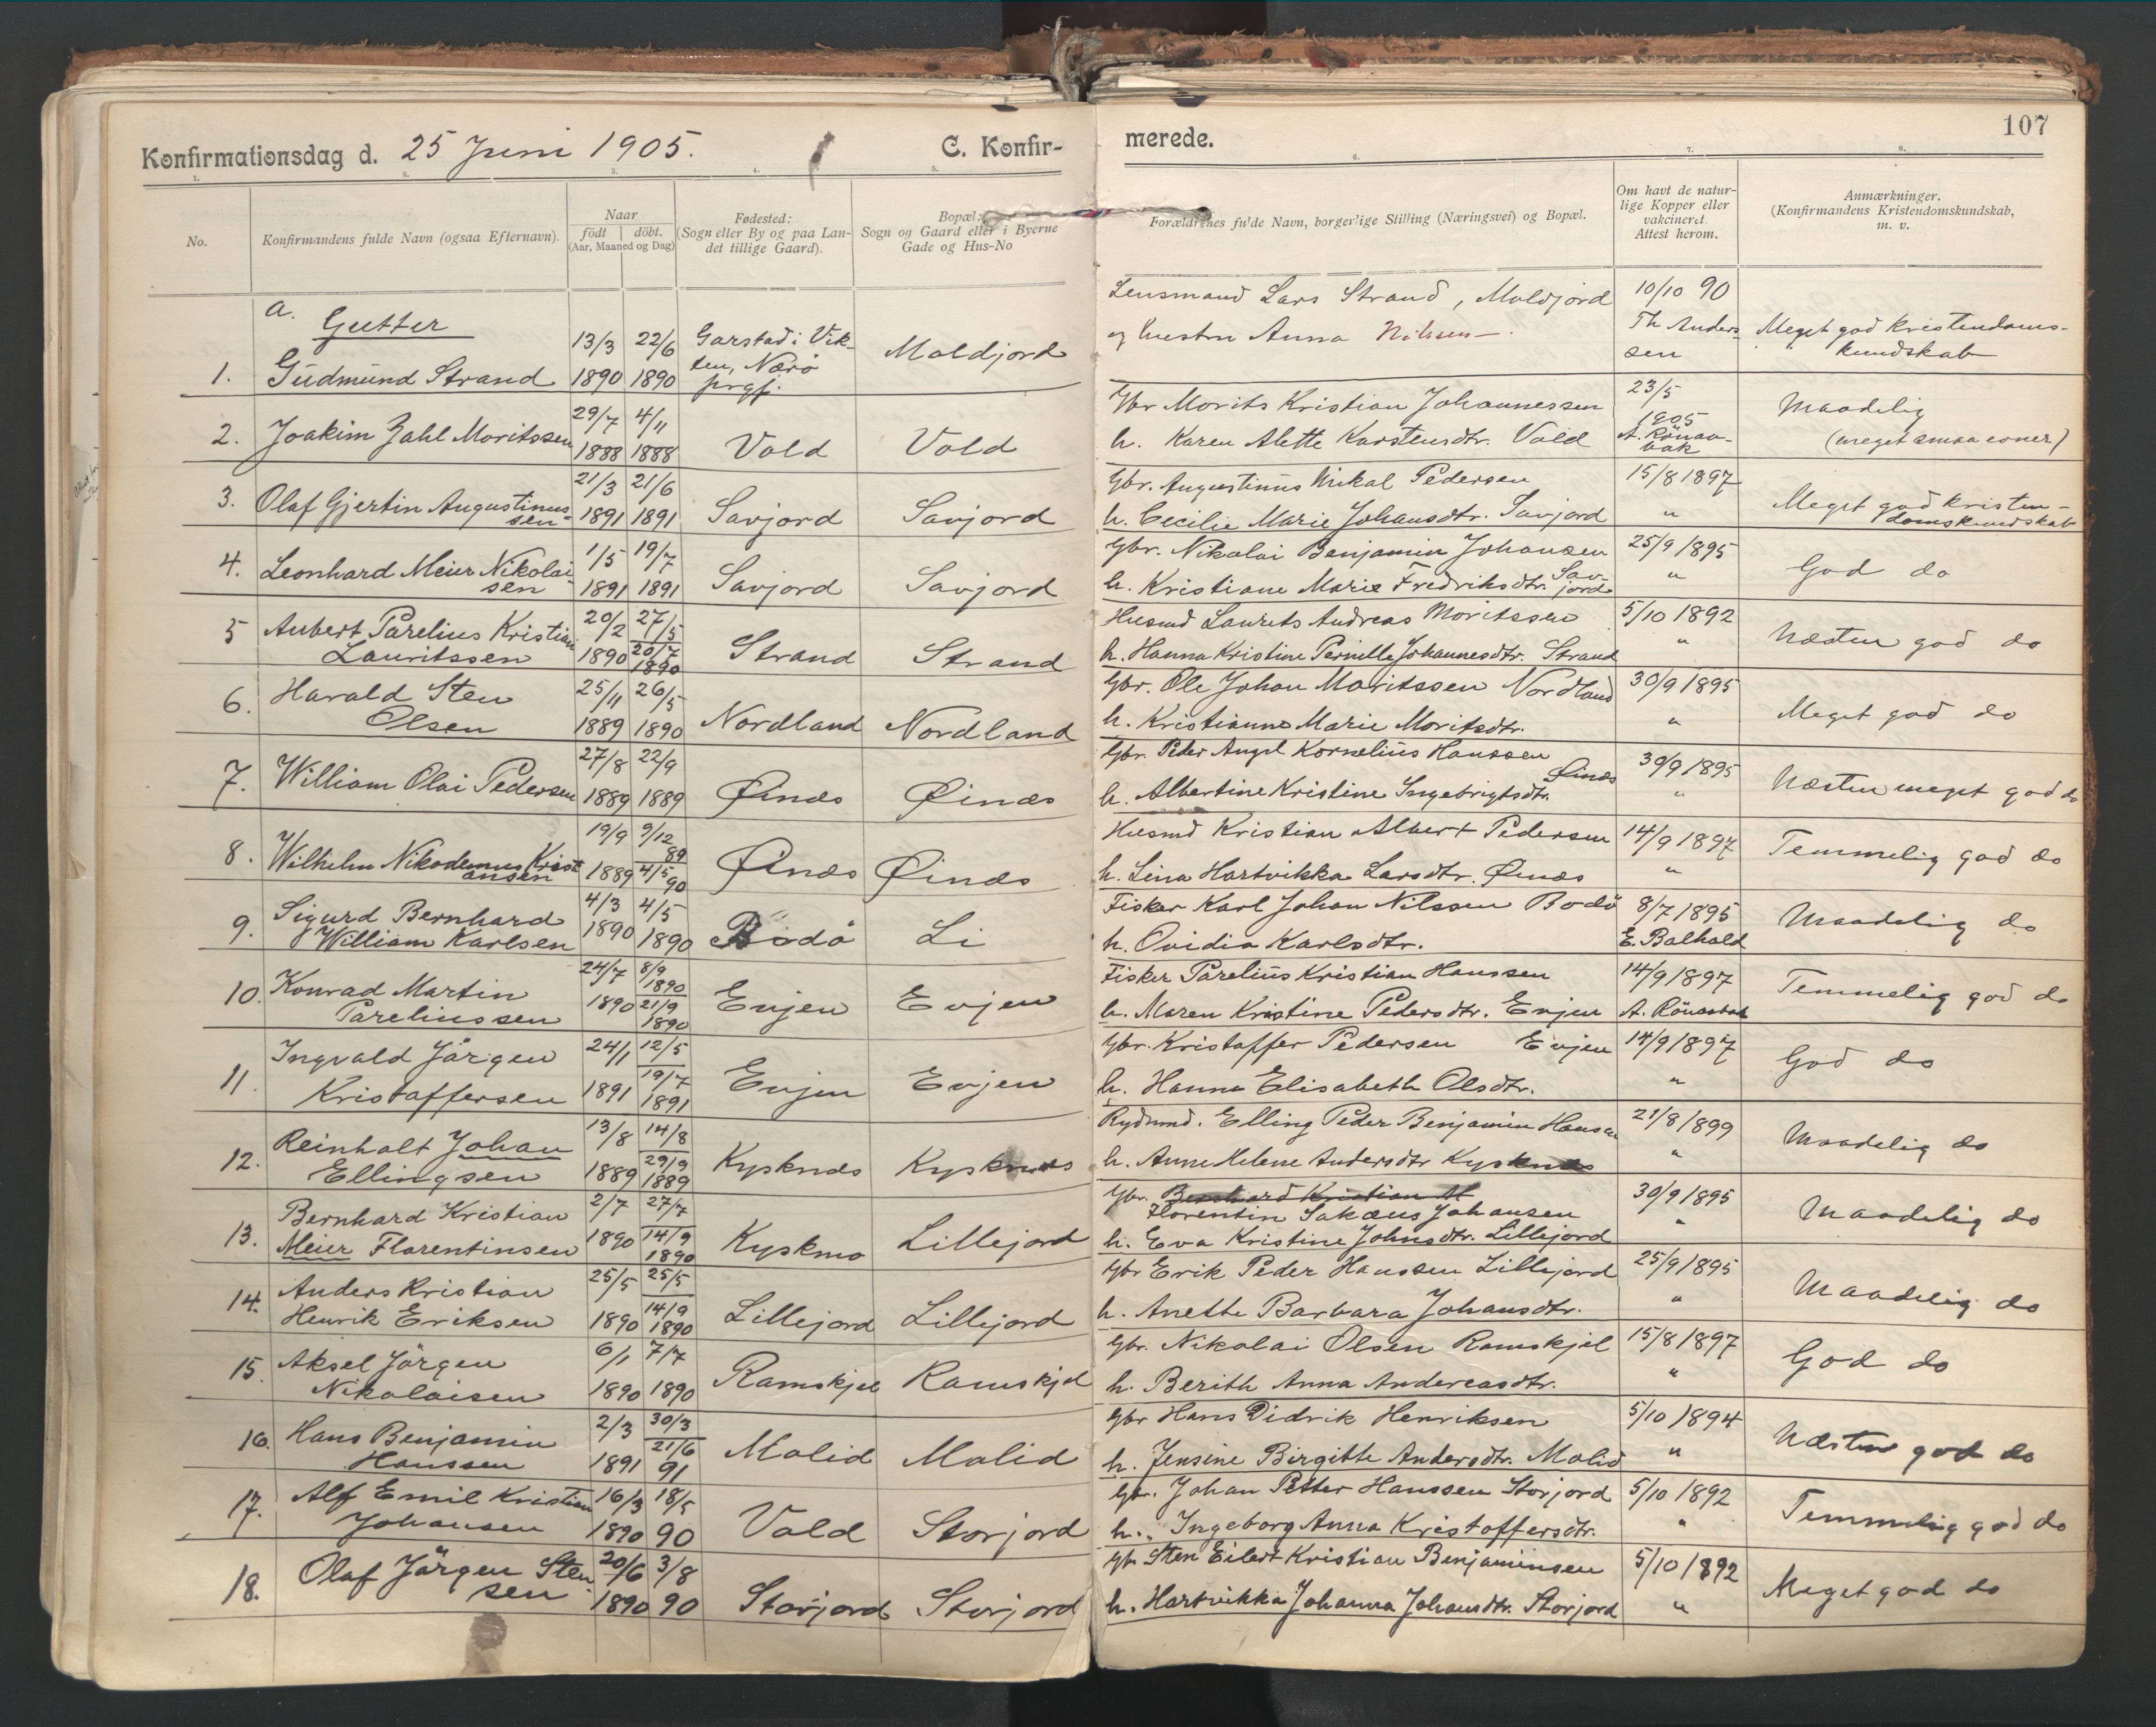 107
Konfirmationsdag d. 25 Juni 1905. C. Konfir-
merede.
1. 2. 3. 4. 5. 6. 7. 8.
No.
Konfirmandens fulde Navn (ogsaa Efternavn).
Naar
födt | döbt.
(Aar, Maaned og Dag)
Fødested:
(Sogn eller By og paa Lan-
det tillige Gaard).
Bopæl:
Sogn og Gaard eller i Byerne
Gade og Hus-No
Forældrenes fulde Navn, borgerlige Stilling (Næringsvei) og Bopæl.
Om havt de natur-
lige Kopper eller
vakcineret.
Attest herom.
Anmærkninger.
(Konfirmandens Kristendomskundskab,
m. v.
a. Gutter
1. Gudmund Strand 13/3 1890 22/6 1890 Garstad i Vik-
ten, Nærö
prgj. Moldjord
Lensmand Lars Strand, Moldjord
og hustru Anna Nilssen
10/10 90
Th Anders
sen
Meget god Kristendoms-
kundskab
2. Joakim Zahl Moritssen 29/7 1888 4/11 1888 Vold Vold
Gbr Morits Kristian Johannessen
h. Karen Alette Karstensdtr. Vold
23/5
1905
A. Rönaa-
bak
Maadelig
(meget smaa evner)
3. Olaf Gjertin Augustinus
sen 21/3 1891 21/6 1891 Savjord Savjord
Gbr. Augustinus Mikal Pedersen
h. Cecilie Marie Johansdtr. Savjord
15/8 1897
"
Meget god Kristen-
domskundskab
4. Leonhard Meier Nikolai
sen 1/5 1891 19/7 1891 Savjord Savjord
Gbr. Nikolai Benjamin Johansen
h. Kristiane Marie Fredriksdtr. Sav-
jord
25/9 1895
"
God do
5 Aubert Parelius Kristian
Lauritssen 20/2 1890 27/5 20/7 1890 Strand Strand
Husmd Laurits Andreas Moritssen
h. Hanna Kristine Pernille Johannesdtr. Strand
5/10 1892
"
Næsten god do
6. Harald Sten
Olsen 25/11 1889 26/5 1890 Nordland Nordland
Gbr. Ole Johan Moritssen Nordland
h. Kristianne Marie Moritsdtr.
30/9 1895
"
Meget god do
7. William Olai Pedersen 27/8 1889 22/9 1889 Øinæs Øinæs
Gbr. Peder Angel Kornelius Hanssen
h. Albertine Kristine Ingebrigtsdtr. Øinæs
30/9 1895
"
Næsten meget god do
8. Wilhelm Nikodemus Kristi
ansen 19/9 1889 9/12 89 4/5 90 Øinæs Øinæs
Husmd Kristian Albert Pedersen
h. Lina Hartvikka Larsdtr. Øinæs
14/9 1897
"
Temmelig god do
9. Sigurd Bernhard
William Karlsen 4/3 1890 4/5 1890 Bodö Li
Fisker Karl Johan Nilssen Bodö
h. Ovidia Karlsdtr.
8/7 1895
E. Balhald
Maadelig do
10. Konrad Martin
Pareliussen 24/7 1890 8/9 1890 21/9 1890 Evjen Evjen
Fisker Parelius Kristian Hanssen
h. Maren Kristine Pedersdtr. Evjen
14/9 1897
A. Rönaabak
Temmelig god do
11. Ingvald Jörgen
Kristoffersen 24/1 1891 12/5 19/7 1891 Evjen Evjen
Gbr. Kristoffer Pedersen Evjen
h. Hanna Elisabeth Olsdtr.
14/9 1897
"
God do
12. Reinholt Johan
Ellingsen 13/8 1889 14/8 29/9 1889 Kysknæs Kysknæs
Rydmd. Elling Peder Benjamin Hansen
h. Anne Helene Andersdtr Kysknæs
21/8 1899
"
Maadelig do
13. Bernhard Kristian
Meier Florentinsen 2/7 1890 27/7 14/9 1890 Kyskmo Lillejord
Gbr. Bernhard Kristian M
Florentin Sakæus Johansen
h. Eva Kristine Johnsdtr. Lillejord
30/9 1895
"
Maadelig do
14. Anders Kristian
Henrik Eriksen 25/5 1890 25/5 14/9 1890 Lillejord Lillejord
Gbr Erik Peder Hanssen Lillejord
h. Anette Barbara Johansdtr.
25/9 1895
"
Maadelig do
15. Aksel Jörgen
Nikolaisen 6/1 1890 7/7 1890 Ramskjel Ramskjel
Gbr. Nikolai Olsen Ramskjel
h. Berith Anna Andreasdtr.
15/8 1897
"
God do
16. Hans Benjamin
Hanssen 2/3 1891 30/3 21/6 91 Molid Molid
Gbr Hans Didrik Henriksen
h. Jensine Birgitte Andersdtr. Molid
5/10 1894
"
Næsten god do
17. Alf Emil Kristian
Johansen 16/3 1890 18/5 90 Vold Storjord
Gbr. Johan Petter Hanssen Storjord
h. Ingeborg Anna Kristoffersdtr.
5/10 1892
"
Temmelig god do
18. Olaf Jörgen Sten
sen 20/6 1890 3/8 90 Storjord Storjord
Gbr Sten Eilert Kristian Benjaminsen
h. Hartvikka Johanna Johansdtr. Storjord
5/10 1892
"
Meget god do